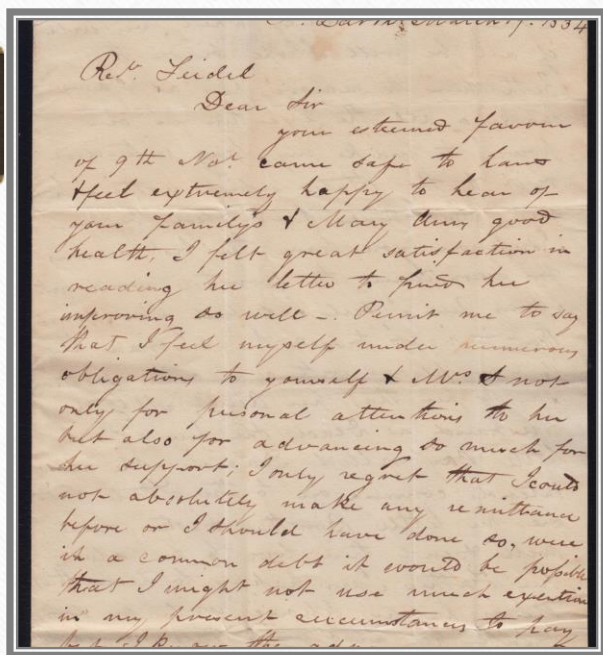 March 17. 1834
Revd. Seidel
Dear Sir
your esteemed favour
of 9th Novr. came safe to hand
& feel extremely happy to hear of
your family's & Mary Anns good
health. I felt great satisfaction in
reading her letter to find her
improving so well -. Permit me to say
that I feel myself under numerous
obligations to yourself & Mrs S not
only for personal attentions to her
but also for advancing so much for
her support; I only regret that I could
not absolutely make any remittance
before or I should have done so, were
it a common debt it would be possible
that I might not use much exertion
in my present circumstances to pay
the